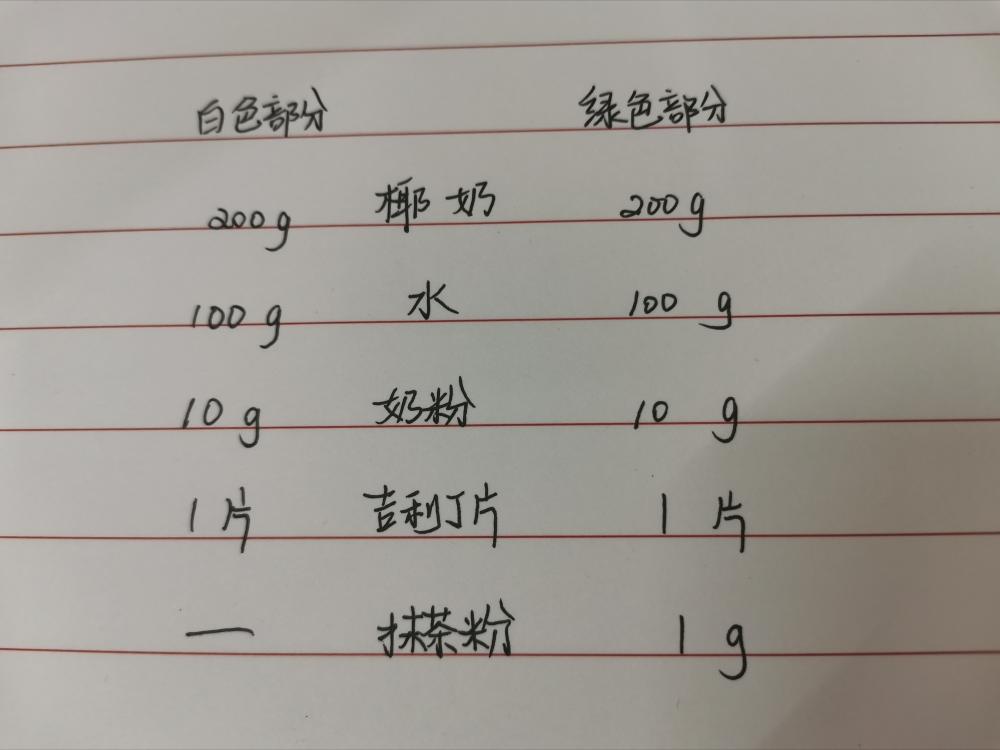 白色部分 绿色部分
200g 椰奶 200g
100g 水 100g
10g 奶粉 10g
1片 吉利丁片 1片
— 抹茶粉 1g